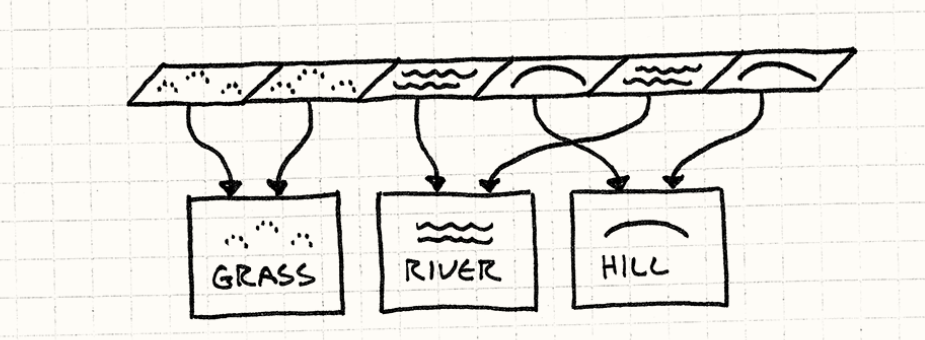 GRASS
RIVER
HILL